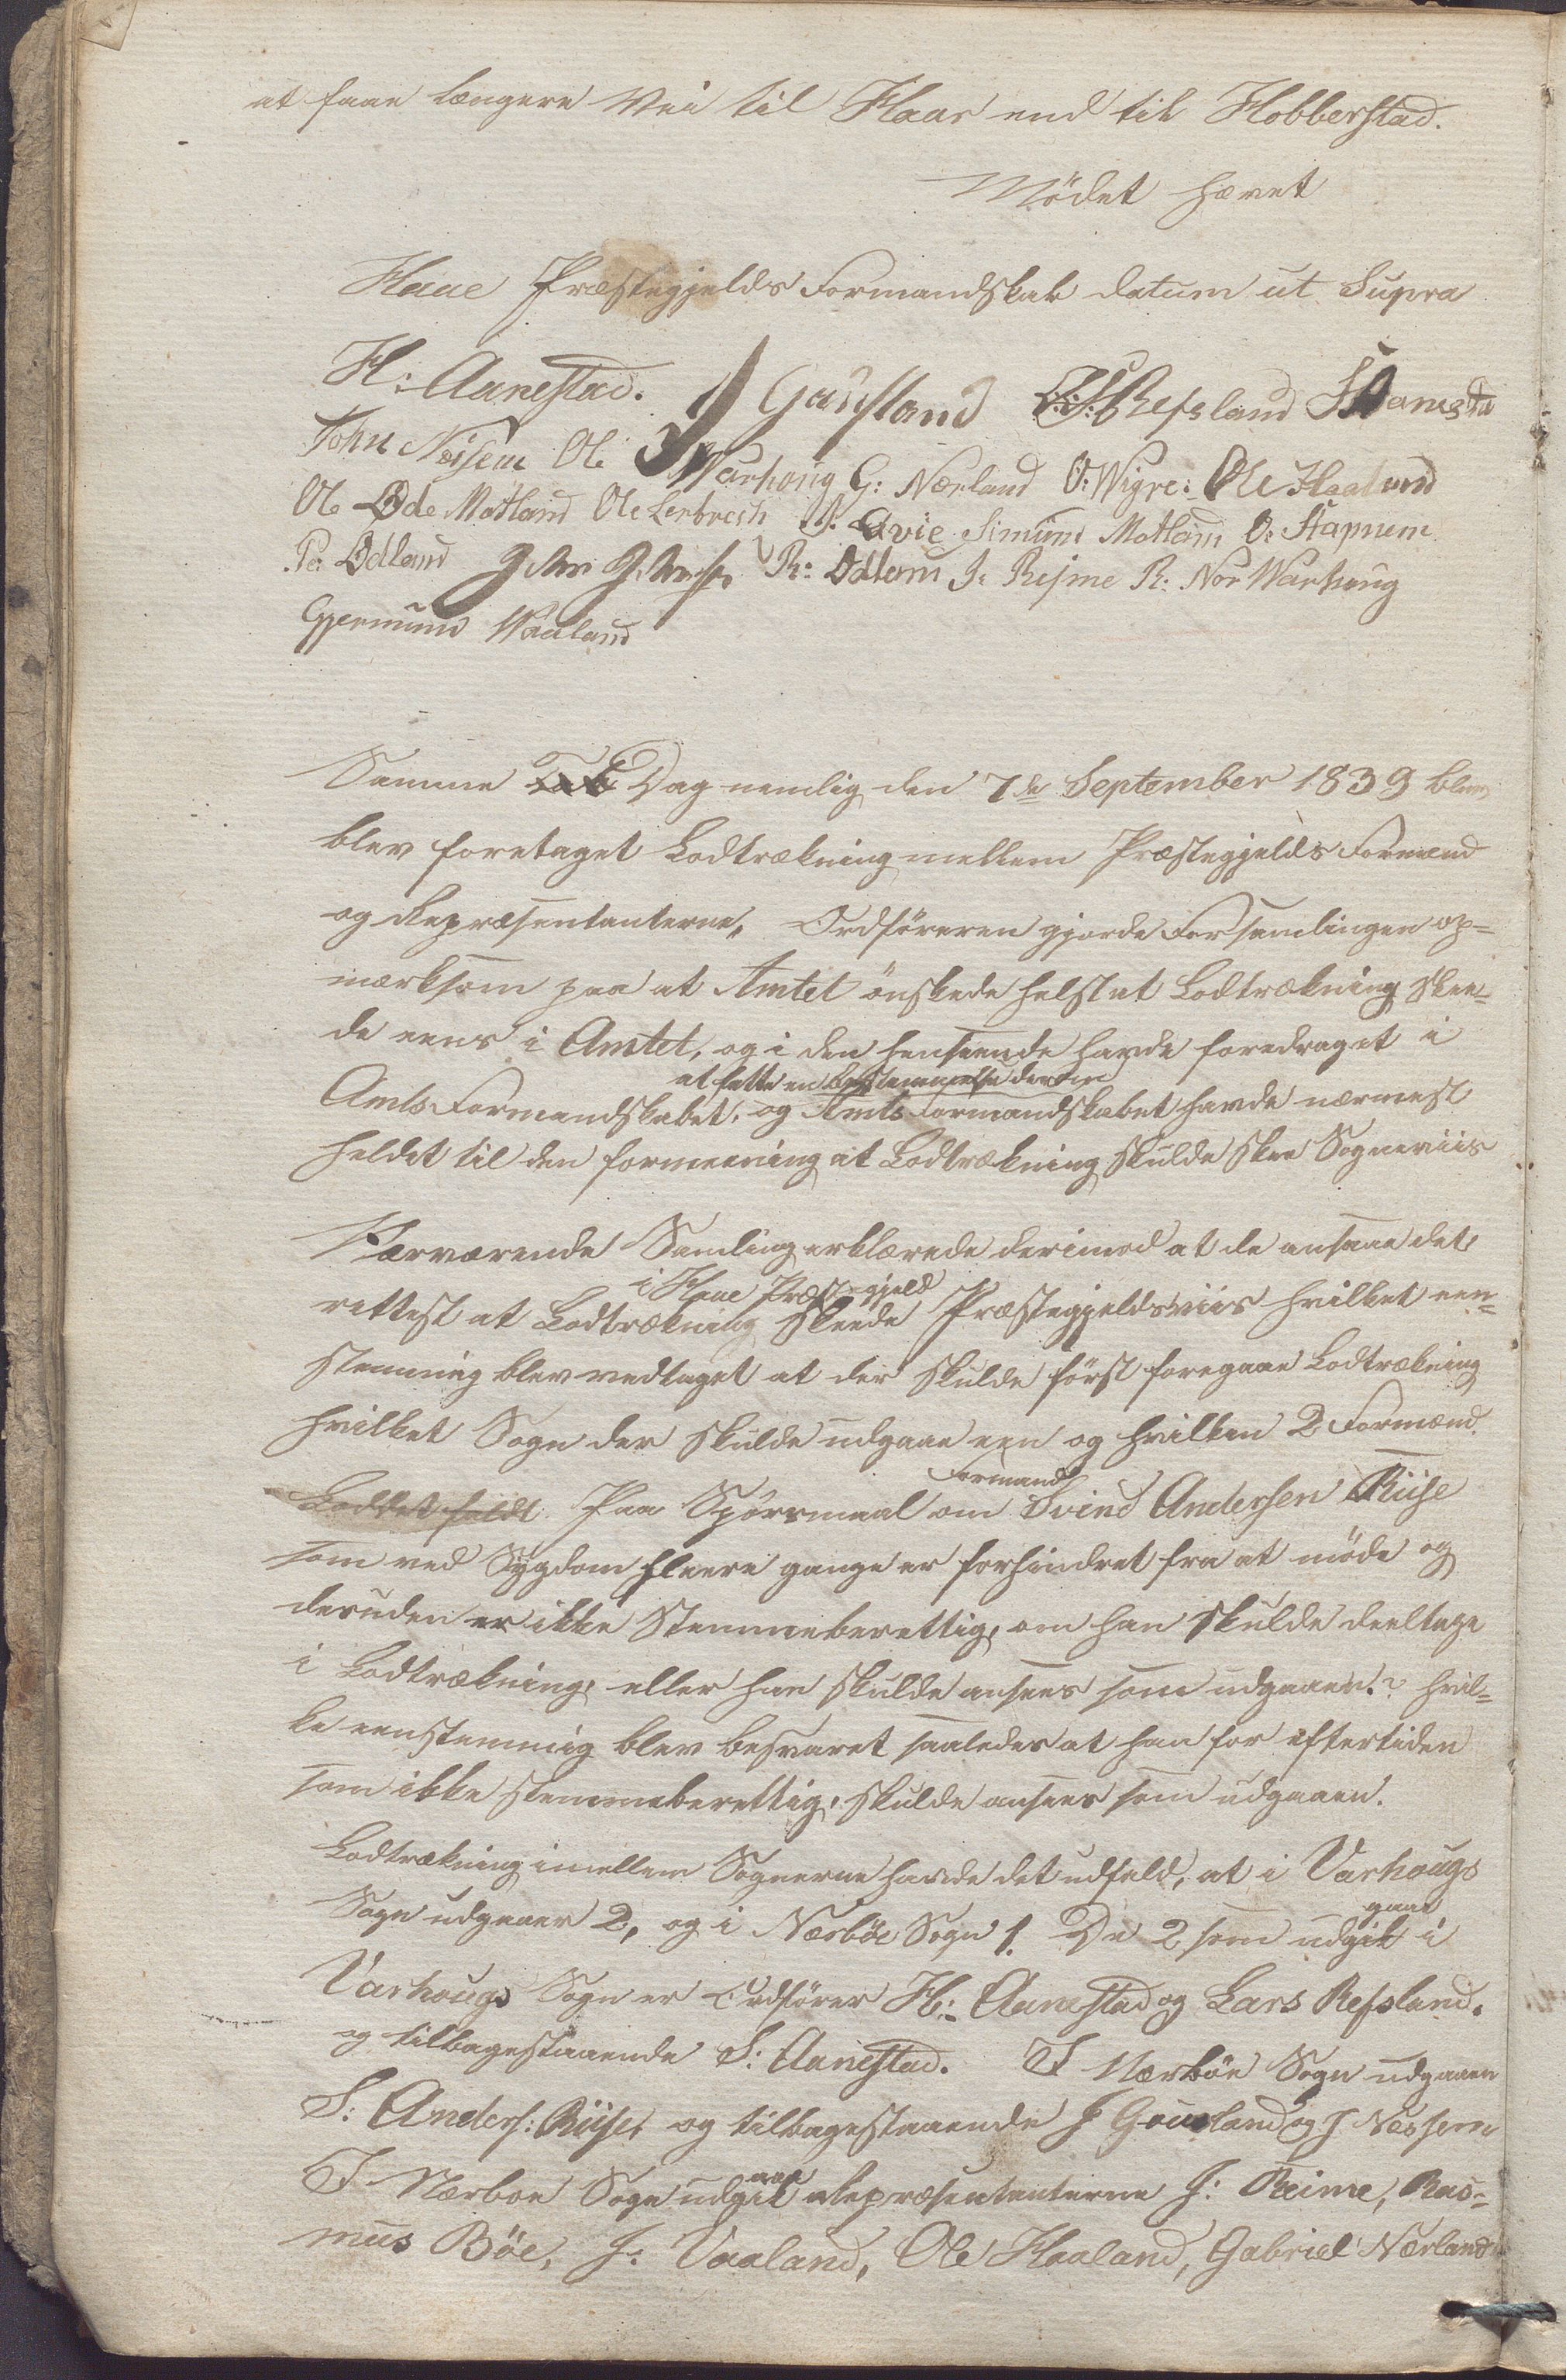 at faae længere Vei til Haar end til Hobberstad.
Mödet hævet
Haae Præstegjelds Formandskab datum ut Supra
H: Aanestad. J Gausland L: Refsland S Aanesta
John Neisem Ole Warhoug G: Nærland O: Wigre: Ole Haaland
Ole Øde Motland Ole Lerbrech A. Qvie Simünd Motland O: Stapnem
Pe: Ødland R: Ødland J: Rejme R: Nor Warhoug
Gjermund Waaland
Samme Dag nemlig den 7de September 1839 blev
blev foretaget Lodtrækning mellem Præstegjelds Formænd
og Repræsentanterne, Ordföreren gjorde Forsamlingen op-
mærksom paa at Amtet önskede helst at Lodtrækning skee-
de eens i Amtet, og i den henseende havde foredraget i
at fatte en bestemmelse derom
Amts Formandskabet, og Amts Formandskabet havde nærmest
heldet til den formeening at Lodtrækning skulde skee Sogneviis
Nærværende Samling erklærede derimod at de ansaae det
i Haae Præstegjeld
rettest at Lodtrækning skeede Præstegjeldsviis hvilket een-
stemmig blev vedtaget at der skulde först foregaae Lodtrækning
hvilket Sogn der skulde udgaae een og hvilken 2 Formænd.
Formand
Loddet faldt Paa Spörsmaal om Svend Andersen Riise
som ved Sygdom fleere gange er forhindret fra at möde og
desuden er ikke Stemmeberettig, om han skulde deeltage
i Lodtrækning, eller han skulde ansees som udgaaen? hvil-
ke eenstemmig blev besvaret saaledes at han for eftertiden
som ikke stemmeberettig, skulde ansees som udgaaen.
Lodtrækning imellem Sognerne havde det udfald, at i Varhougs
Sogn udgaaer 2, og i Nærböe Sogn 1. De 2 som udgik i
gaar
Varhougs Sogn er Ordförer H: Aanestad og Lars Refsland.
og tilbagestaaende S: Aanestad. I Nærböe Sogn udgaaen
S: Anders: Riise, og tilbagestaaende J Gausland og J Næssem
I Nærboe Sogn udgik Repræsentanterne J: Reime, Ras-
mus Böe, J: Vaaland, Ole Haaland, Gabriel Nærland